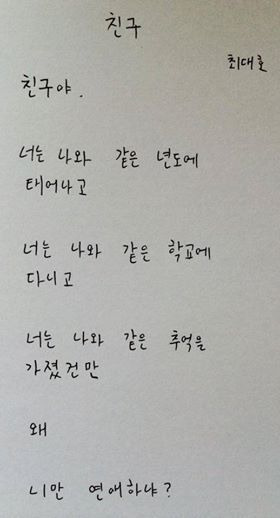 친구
최대호
친구야.
너는 나와 같은 년도에
태어나고
너는 나와 같은 학교에
다니고
너는 나와 같은 추억을
가졌건만
왜
니만 연애하냐?